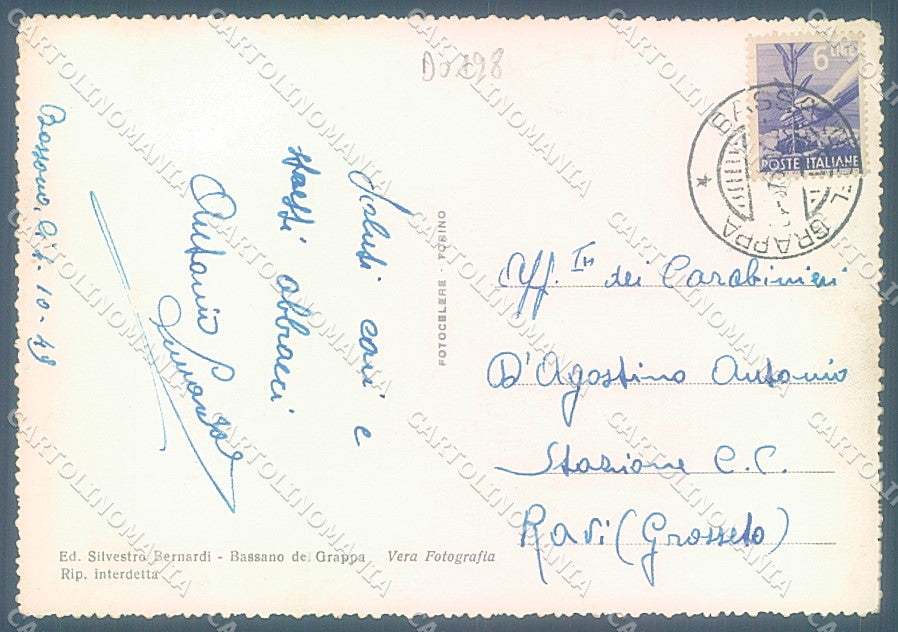 D0298
6 LIRE
POSTE ITALIANE
BASSANO DEL GRAPPA
Bassano, 10-48
Saluti cari e
stessi abbracci
Antonio
FOTOCELERE - TORINO
Aff. in dei Carabinieri
D'Agostino Antonio
Stazione C.C.
Ravi (Grosseto)
Ed. Silvestro Bernardi - Bassano del Grappa Vera Fotografia
Rip. interdetta
CARTOLINOMANIA